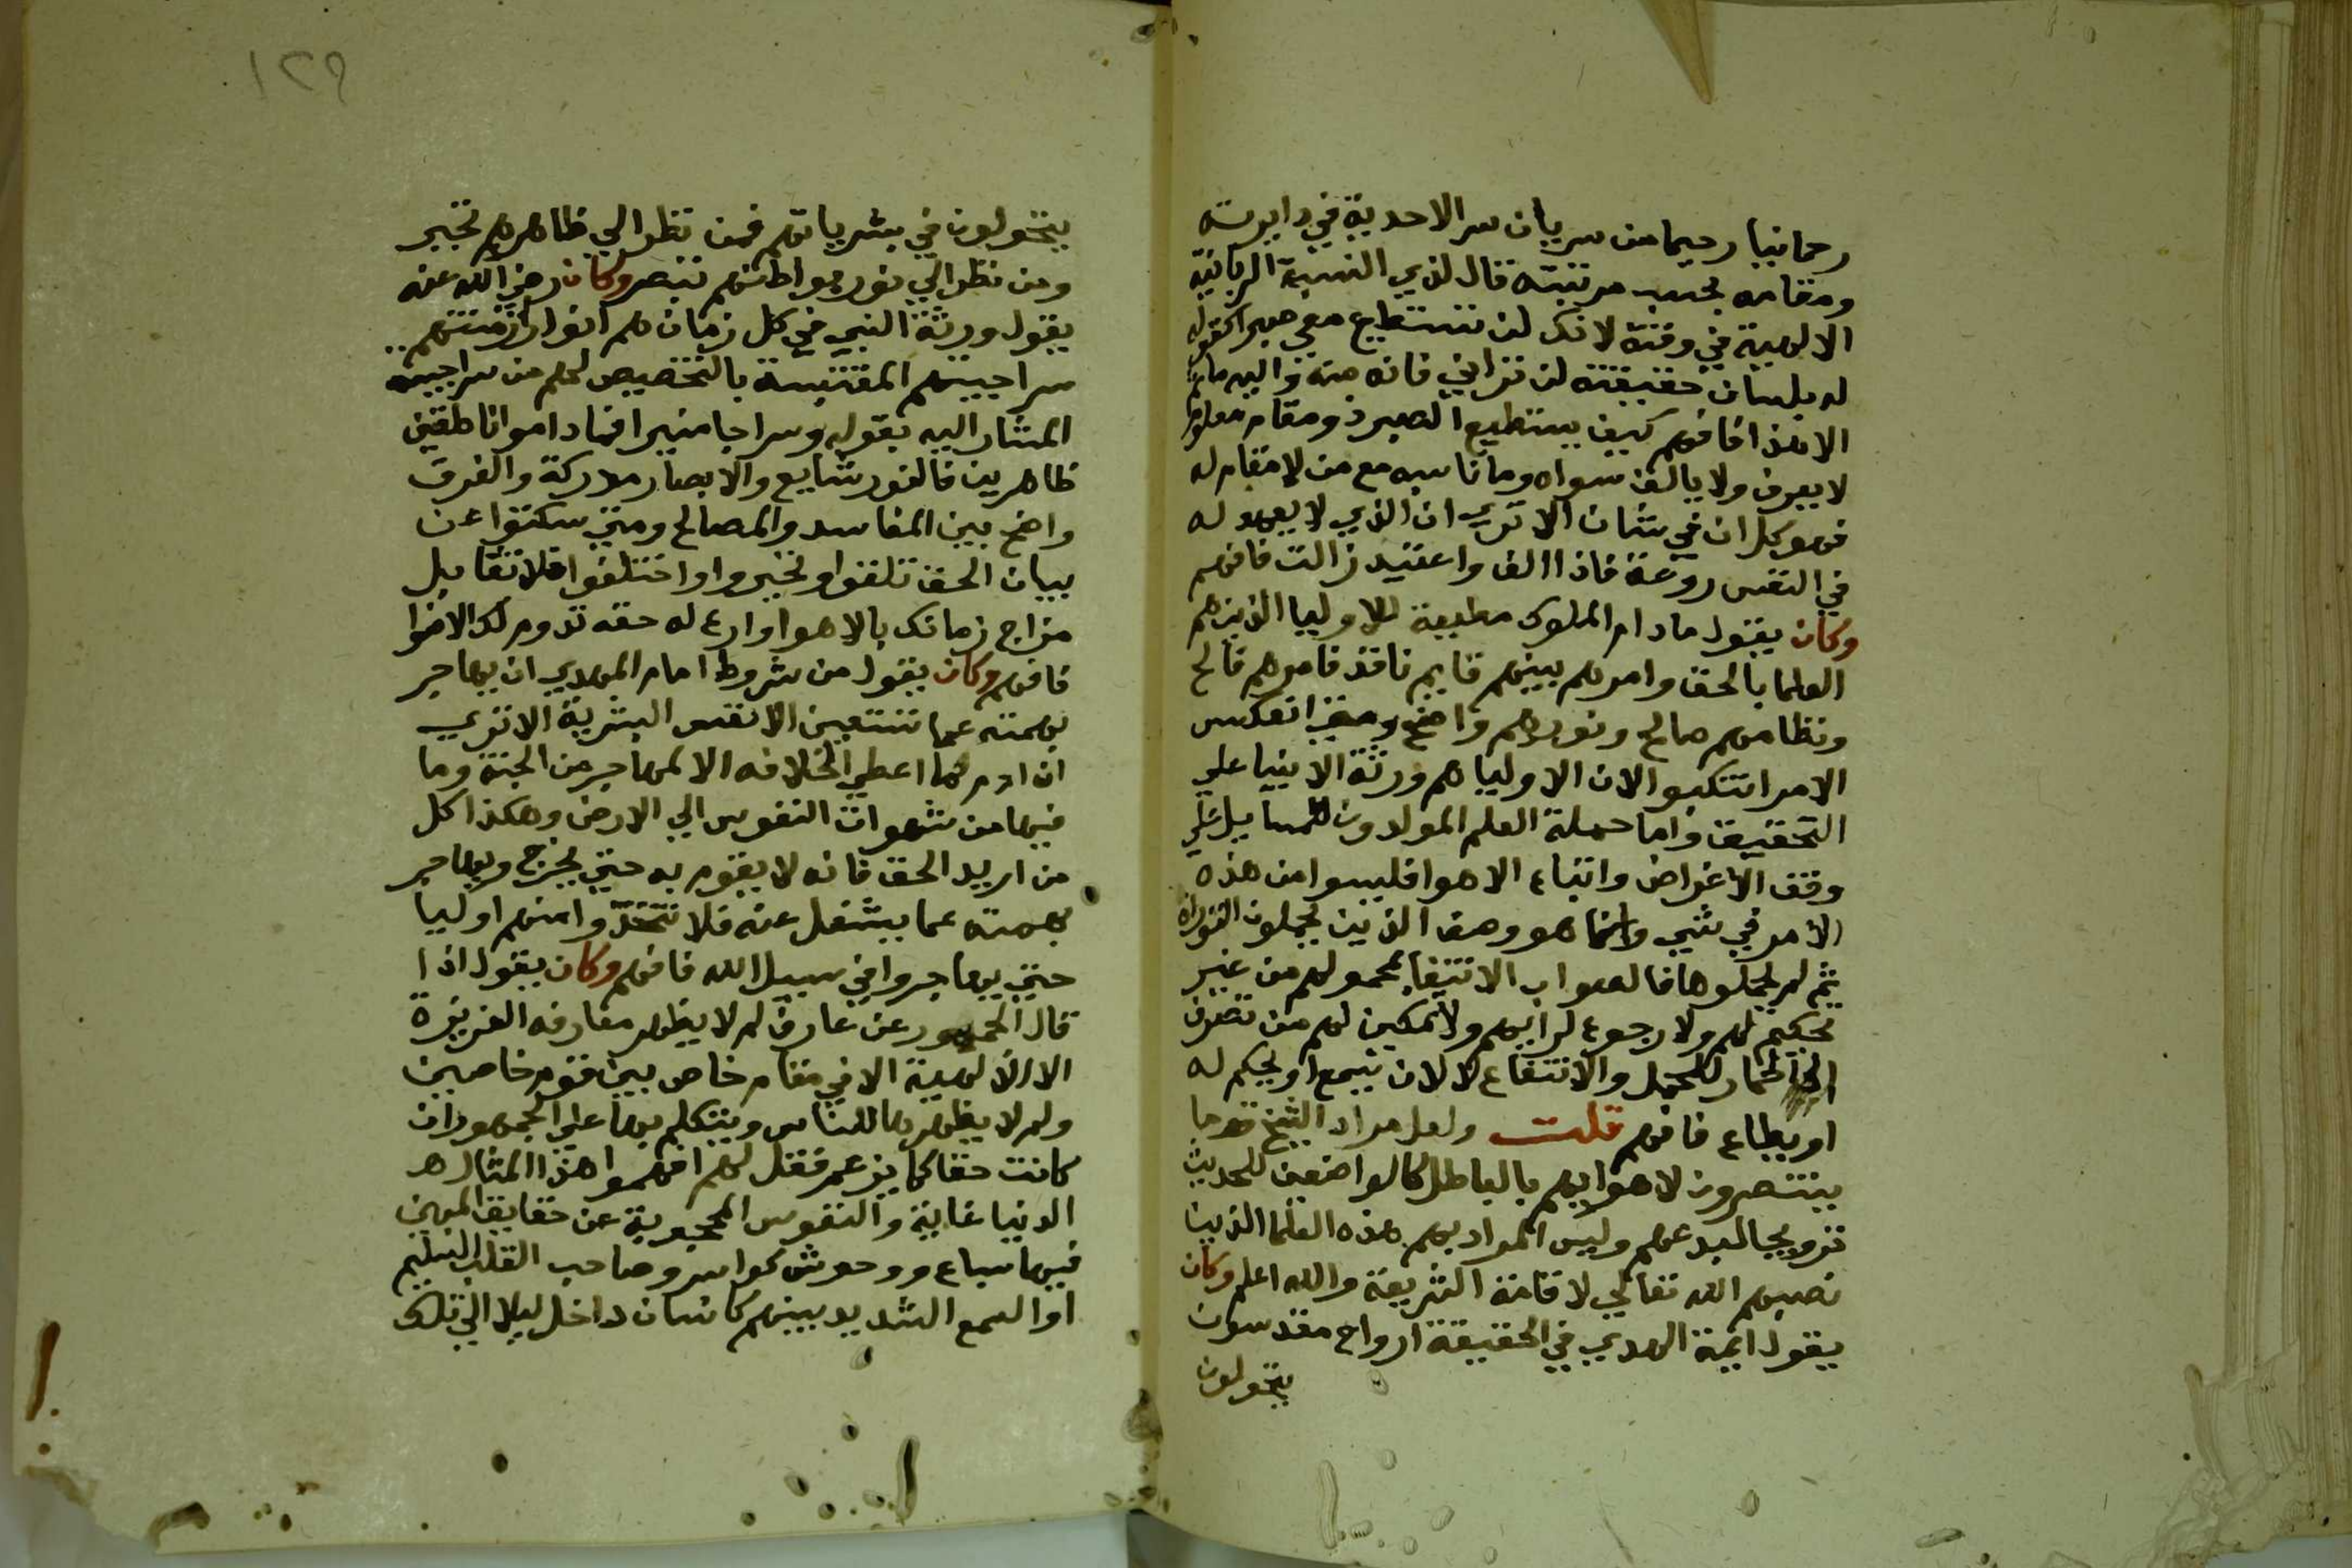 رحمانيا رحيما من سريان سر الاحدية في دايرته
ومقامه بحسب مرتبته قال لذي النسبة الربانية
الالهية في وقته لانك لن تستطيع معي صبرا كقوله
له بلسان حقيقته لن تراني فانه منه واليه ما ثم
الا هذا فافهم كيف يستطيع الصبر ذو مقام معلوم
لا يعرف ولا يالف سواه وما ناسبه مع من لا مقام له
فهو كل ان في شان الا تري ان الذي لا يعهد له
في النفس روعة فاذا الف واعتيد زالت فافهم
وكان يقول ما دام الملوك مطيعة للاوليا الذين هم
العلما بالحق وامرهم بينهم قايم نافذ فامرهم فالح
ونظامهم صالح ونورهم واضح ومتي انعكس
الامر انتكسوا لان الاوليا هم ورثة الانبيا علي
التحقيق واما حملة العلم المولدون للمسايل علي
وقف الاغراض واتباع الاهوا فليسوا من هذه
الامر في شي وانما هو وصف الذين يحملون التوراة
ثم لم يحملوها فالصواب الانتفا بمحمولهم من غير
تحكيم لهم ولا رجوع لرايهم ولا تمكين لهم من تصرف
الحمار للحمل والانتفاع لا لان يتبع او يحكم له
او يطاع فافهم قلت ولعل مراد الشيخ قوما
ينتصرون لاهوايهم بالباطل كالواضعين للحديث
ترويجا لبدعهم وليس المراد بهم هذه العلما الذين
نصبهم الله تعالي لاقامة الشريعة والله اعلم وكان
يقول ايمة الهدي في الحقيقة ارواح مقدسون
يتحولون
١٢٩
يتحولون في بشرياتهم فمن نظر الي ظاهرهم تحير
ومن نظر الي نور بواطنهم تبصر وكان رضي الله عنه
يقول ورثة النبي في كل زمان هم انوار ازمنتهم
سراجيتهم المقتبسة بالتخصيص لهم من سراجيته
المشار اليه بقوله وسراجا منيرا فما داموا ناطقين
ظاهرين فالنور شايع والابصار مدركة والفرق
واضح بين المفاسد والمصالح ومتي سكتوا عن
بيان الحق تلفوا وتحيروا واختلفوا فلا تقابل
مزاج زمانك بالاهوا وارع له حقه تدوم لك الاضوا
فافهم وكان يقول من شروط امام المهدي ان يهاجر
بهمته عما تتعين الانفس البشرية الا تري
ان ادم لما اعطي الخلافه الا لمهاجر من الجنة وما
فيها من شهوات النفوس الي الارض وهكذا كل
من اريد الحق فانه لا يقوم به حتي يخرج ويهاجر
بهمته عما يشغل عنه فلا تتخذوا منهم اوليا
حتي يهاجروا في سبيل الله فافهم وكان يقول اذا
قال الجمهور عن عارف لم لا يظهر معارفه العزيزة
الالالهية الا في مقام خاص بين قوم خاصين
ولم لا يظهرها للناس ويتكلم بها علي الجمهور ان
كانت حقا كما يزعم فقل لهم افهموا هذا المثال هـ
الدنيا غابة والنفوس المحجوبة عن حقايق المهين
فيها سباع ووحوش كواسر وصاحب القلب السليم
او السمع الشديد بينهم كانسان داخل ليلا الي تلك